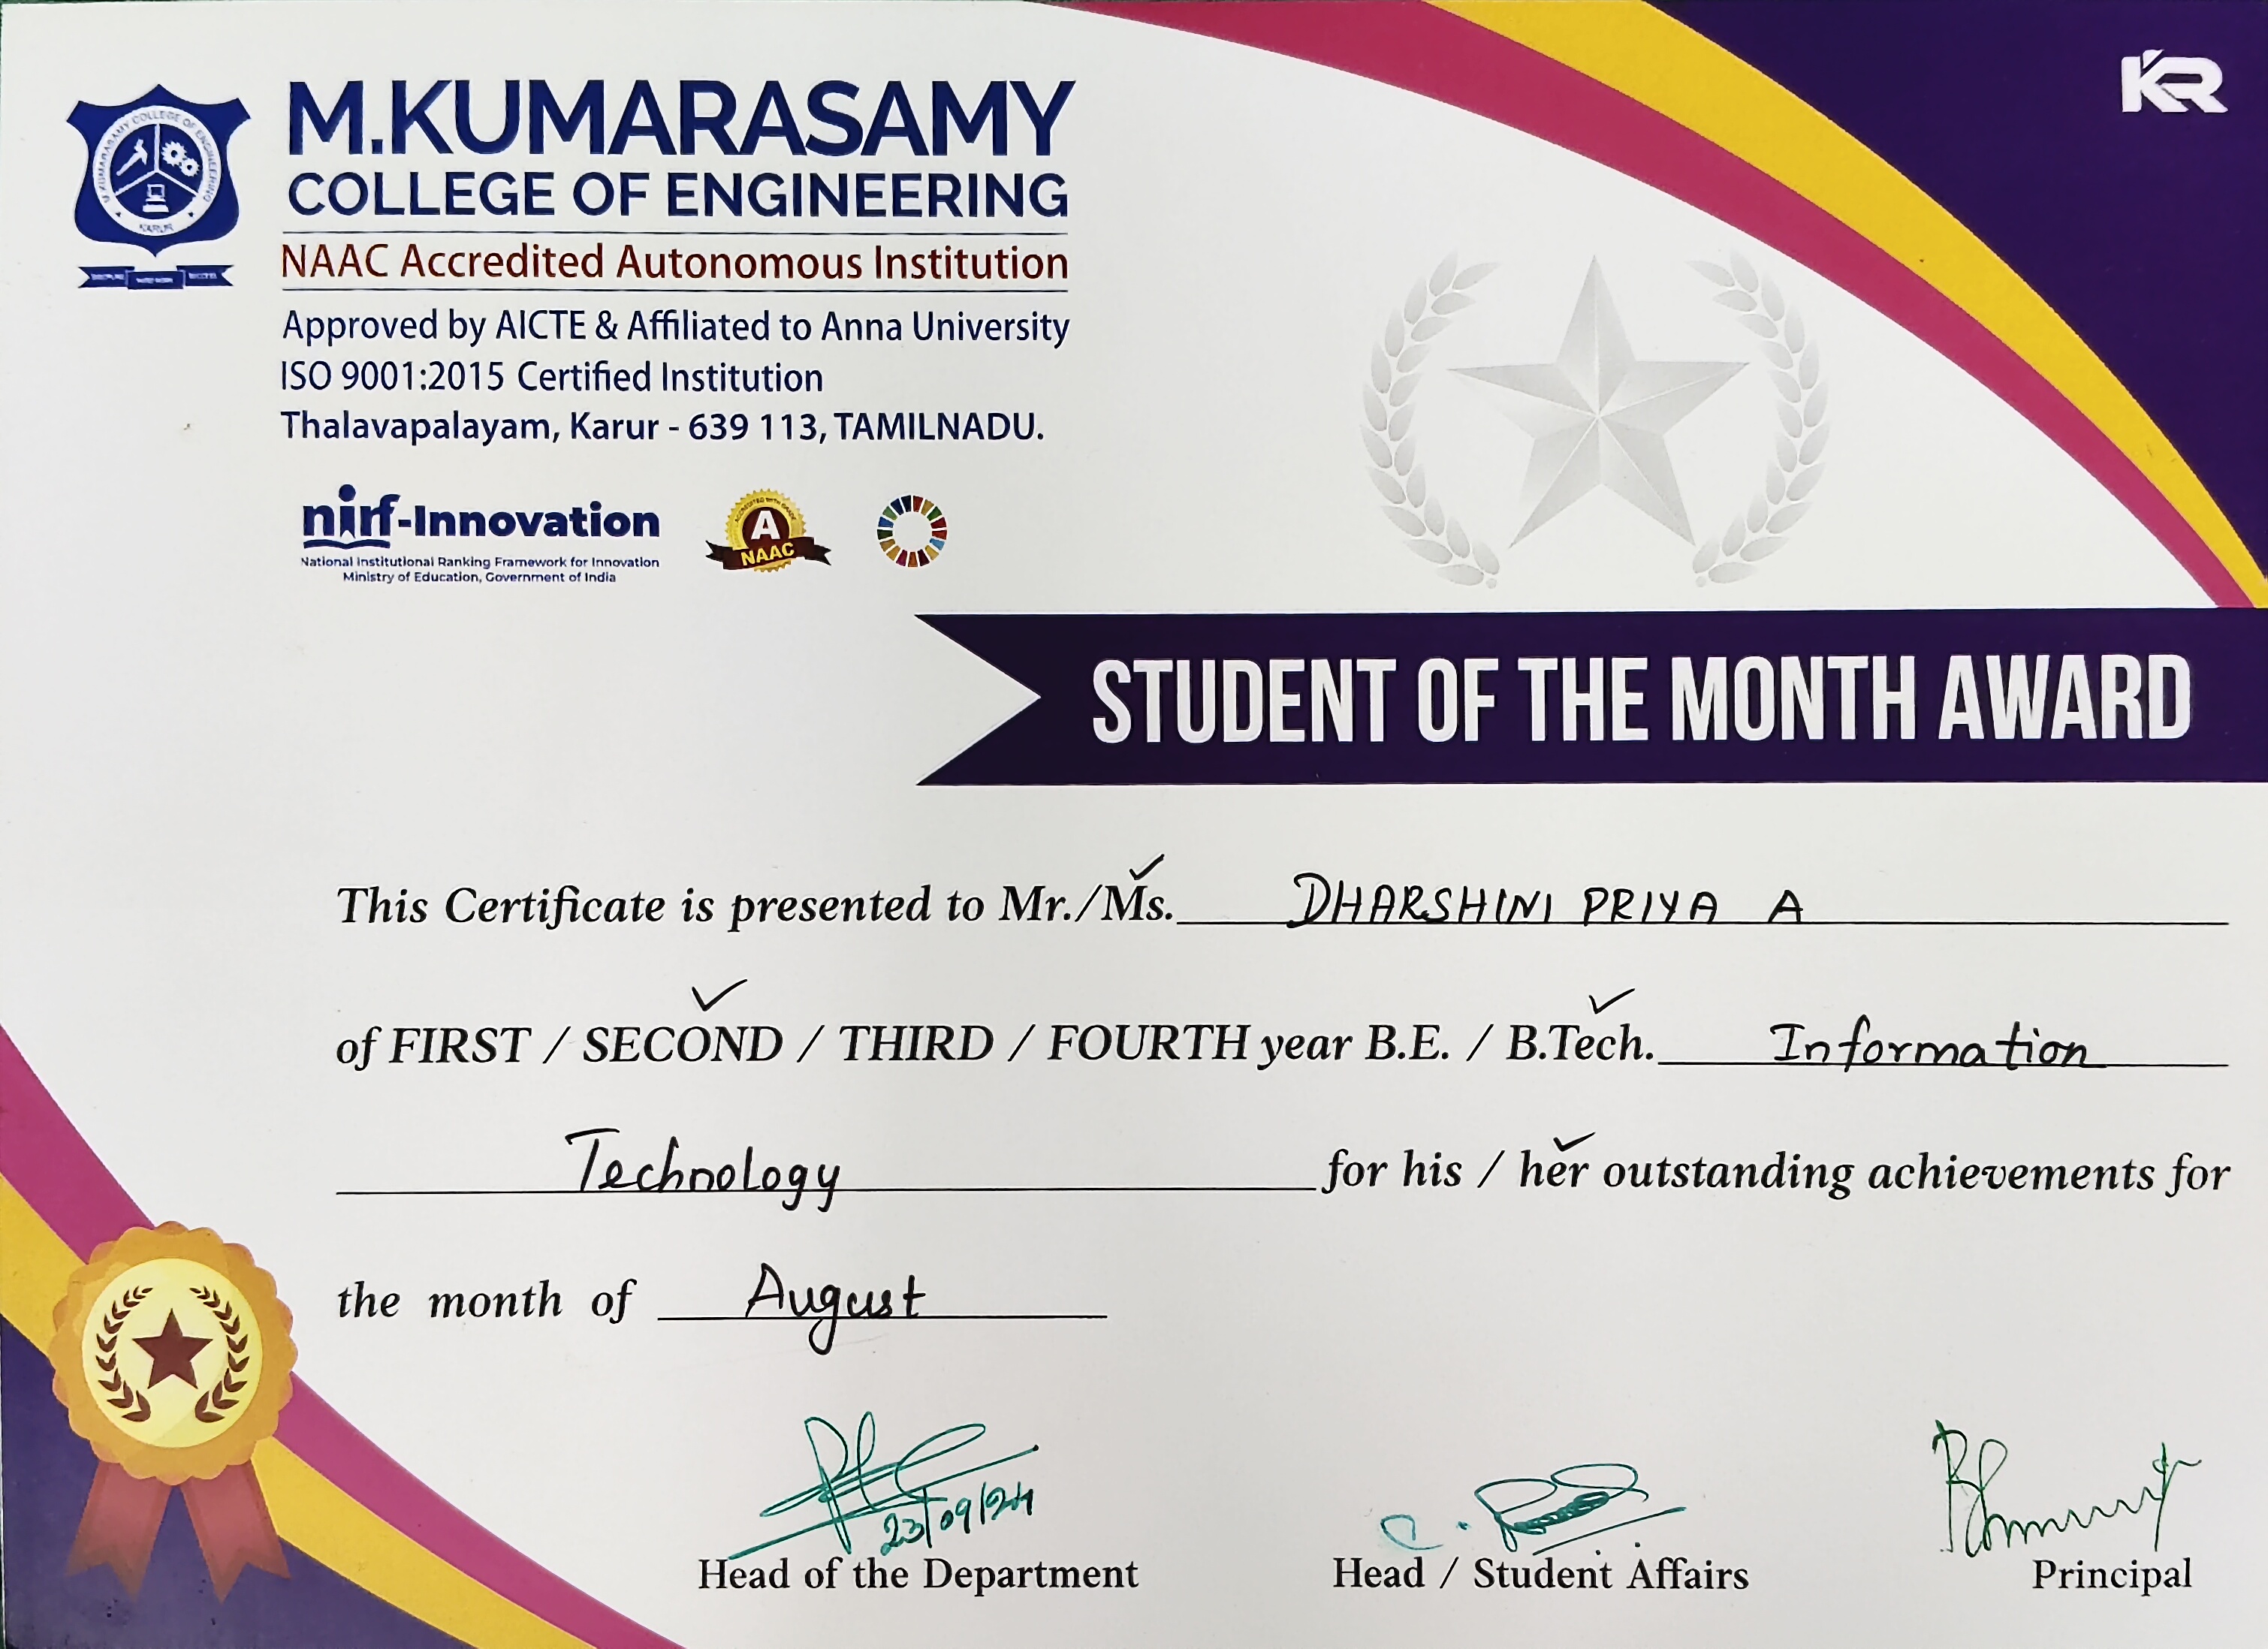 KR
M.KUMARASAMY
COLLEGE OF ENGINEERING
NAAC Accredited Autonomous Institution
Approved by AICTE & Affiliated to Anna University
ISO 9001:2015 Certified Institution
Thalavapalayam, Karur - 639 113, TAMILNADU.
M.KUMARASAMY COLLEGE OF ENGINEERING
KARUR
nirf-Innovation
National Institutional Ranking Framework for Innovation
Ministry of Education, Government of India
ACCREDITED WITH GRADE
A
NAAC
STUDENT OF THE MONTH AWARD
This Certificate is presented to Mr./Ms. DHARSHINI PRIYA A
of FIRST / SECOND / THIRD / FOURTH year B.E. / B.Tech. Information
Technology for his / her outstanding achievements for
the month of August
23/09/24
Head of the Department
Head / Student Affairs
Principal